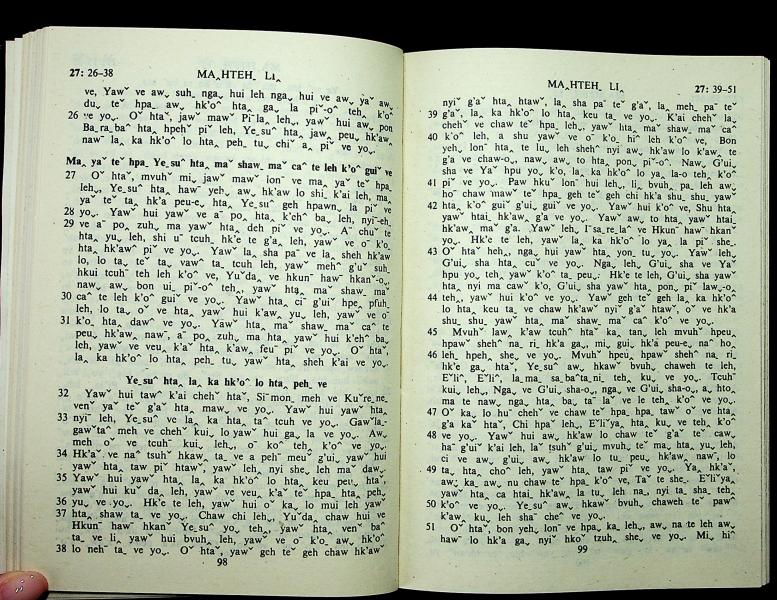 27: 26–38
MA‸HTEH‸ LI‸
ve, Yawˇ ve aw˯ suh‸ nga˯ hui leh nga˯ hui ve aw˯ yaˇ aw˯
du˯ teˇ hpa‸ aw˯ hk'oˆ hta‸ ga‸ la piˇ-oˆ teh‸ k'oˆ
26 ve yo˯. Oˇ htaˇ, jawˇ mawˇ Pi-la leh˯, yawˇ hui aw˯ pon
Ba‸ra‸baˇ hta‸ hpehˇ piˇ leh, Ye‸suˆ hta‸ jaw‸ peu˯ hk'aw˯
nawˉ la‸ ka hk'oˆ lo hta‸ peh‸ tu‸ chiˇ a˯ piˇ ve yo˯.
Ma‸ yaˇ teˇ hpa‸ Ye‸suˆ hta‸ maˇ shaw‸ maˇ caˆ te leh k'oˆ guiˇ ve
27 Oˇ htaˇ, mvuhˇ mi˯ jawˇ mawˇ lonˉ ve ma‸ yaˇ teˇ hpa‸
leh˯, Ye‸suˆ hta‸ hawˉ yeh˯ aw˯ hk'aw lo shi‸ k'ai leh, ma‸
ya teˇ ta‸ hk'a peu-e‸ hta‸ Ye‸suˆ geh hpawn‸ la piˇ ve
28 yo˯. Yawˇ hui yawˇ ve aˉ po‸ hta‸ k'ehˆ ba‸ leh, nyi-eh˯
29 ve aˉ po‸ zuh‸ ma yawˇ hta‸ deh piˇ ve yo˯. Aˇ chuˇ te
hta‸ yu‸ leh, shi uˇ tcuhˉ hk'e te g'a‸ leh, yawˇ ve oˉ k'o‸
hta‸ hk'awˆ piˇ ve yo˯. Yawˇ la‸ sha paˉ ve la‸ sheh hk'aw
lo, lo ta‸ teˇ ta‸ yawˇ ta‸ tcuh leh, yawˇ mehˆ g'uˇ suh‸
hkui tcuhˉ teh leh k'oˆ ve, Yuˇda‸ ve hkunˉ hawˇ hkanˇ-o‸
naw˯ aw˯ bon ui‸ piˇ-oˆ teh˯ yawˇ hta‸ maˇ shaw‸ maˇ
30 caˆ te leh k'oˆ guiˇ ve yo˯. Yawˇ hta‸ ciˉ g'uiˇ hpe‸ pfuh‸
leh, lo ta‸ oˇ ve hta‸ yawˇ hui k'aw‸ yu‸ leh, yawˇ ve oˉ
31 k'o‸ hta‸ dawˆ ve yo˯. Yawˇ hta‸ maˇ shaw‸ maˇ caˆ te
peu˯ hk'aw˯ nawˉ, aˉ po‸ zuh‸ ma hta‸ yawˇ hui k'ehˆ ba‸
leh, yawˇ ve veu‸ k'aˇ hta‸ k'aw‸ feuˉ piˇ ve yo˯. Oˇ htaˇ,
la‸ ka hk'oˆ lo hta‸ peh‸ tu‸ yawˇ hta‸ sheh k'ai ve yo˯.
Ye‸suˆ hta‸ la‸ ka hk'oˆ lo hta‸ peh‸ ve
32 Yawˇ hui tawˇ k'ai chehˇ htaˇ, Siˉmon‸ meh ve Kuˇre‸ne‸
venˇ yaˇ teˇ g'aˇ hta‸ maw‸ ve yo˯. Yawˇ hui yawˇ hta‸
33 nyiˇ leh, Ye‸suˆ ve la‸ ka hta‸ taˆ tcuh ve yo˯. Gawˇla-
gawˇtaˆ meh ve chehˇ kui˯ lo yawˇ hui ga‸ la ve yo˯. Aw˯
meh oˇ ve tcuhˉ kui˯ leh˯, oˉ k'o‸ teh‸ k'oˆ ve yo˯.
34 Hk'aˇ ve naˆ tsuhˇ hkaw‸ ta‸ ve a pehˉ meuˆ g'ui˯ yawˇ hui
yawˇ hta‸ taw piˇ htawˇ, yawˇ leh˯ nyi she‸ leh maˇ daw‸.
35 Yawˇ hui yawˇ hta‸ la‸ ka hk'oˆ lo hta‸ keu peu˯ htaˇ,
yawˇ hui kuˇ da‸ leh, yawˇ ve veu‸ k'aˇ teˇ hpa‸ hta‸ peh‸
36 yu‸ ve yo˯. Hk'e te leh, yawˇ hui oˇ ka˯ lo mui leh yawˇ
37 hta‸ shaw ta‸ ve yo˯. Chaw chi leh˯, Yuˇda‸ chaw hui ve
Hkunˉ hawˇ hkanˇ Ye‸suˆ yo‸ teh˯ yawˇ hta‸ venˇ baˆ
ta‸ ve li‸ yawˇ hui bvuh‸ leh, yawˇ ve oˉ k'o‸ aw˯ hk'oˆ
38 lo nehˉ ta‸ ve yo˯. Oˇ htaˇ, yawˇ geh teˇ geh chaw hk'awˇ
98
MA‸HTEH‸ LI‸
27: 39–51
nyiˇ g'aˇ hta‸ htawˇ, la‸ sha paˉ teˇ g'aˇ, la‸ meh‸ paˉ teˇ
39 g'aˇ, la‸ ka hk'oˆ lo hta‸ keu ta‸ ve yo˯. K'ai chehˇ la‸
chehˇ ve chaw teˇ hpa‸ leh˯, yawˇ hta‸ maˇ shaw‸ maˇ caˆ
40 k'oˆ leh, a shu yawˇ ve oˉ k'o‸ hiˆ leh k'oˆ ve, Bon
yeh‸ lonˇ hta‸ te lu‸ leh shehˆ nyi aw˯ hk'aw lo k'aw‸ te
g'a ve chaw-o˯, naw˯ aw˯ to hta‸ pon‸ piˇ-oˆ. Naw˯ G'ui˯
sha ve Yaˇ hpu yo‸ k'o˯, la‸ ka hk'oˆ lo ya‸ la-o teh‸ k'oˆ
41 piˇ ve yo˯. Paw‸ hkuˇ lonˉ hui leh˯, li‸ bvuh‸ pa‸ leh aw˯
hoˉ chaw mawˇ teˇ hpa‸ geh teˇ geh chi hk'a shu‸ shu‸ yawˇ
42 hta‸ k'oˆ guiˇ g'ui˯ guiˇ ve yo˯. Yawˇ hui k'oˆ ve, Shu hta‸
yawˇ htai‸ hk'aw‸ g'a ve yo˯. Yawˇ aw˯ to hta‸ yawˇ htai‸
hk'aw‸ maˇ g'a. Yawˇ leh˯ Iˇsa‸re‸laˆ ve Hkunˉ hawˇ hkanˇ
yo˯. Hk'e te leh, yawˇ la‸ ka hk'oˆ lo ya‸ la‸ piˇ she‸.
43 Oˇ htaˇ heh˯, nga‸ hui yawˇ hta‸ yon‸ tu‸ yo˯. Yawˇ leh˯
G'ui˯ sha hta‸ cuˇ ve yo˯. Nga‸ leh˯ G'ui˯ sha ve Yaˇ
hpu yo‸ teh˯ yawˇ k'oˆ ta‸ peu‸. Hk'e te leh, G'ui˯ sha yawˇ
hta‸ nyi ma cawˇ k'o˯ G'ui˯ sha yawˇ hta‸ pon‸ piˇ law‸-o˯
44 teh˯ yawˇ hui k'oˆ ve yo˯. Yawˇ geh teˇ geh la‸ ka hk'oˆ
lo hta‸ keu ta‸ ve chaw hk'awˇ nyiˇ g'aˇ htawˇ, oˇ ve hk'a
shu‸ shu‸ yawˇ hta‸ maˇ shaw‸ maˇ caˆ k'oˆ ve yo˯.
45 Mvuhˇ law‸ k'aw tcuhˇ htaˇ ka‸ tan‸ leh mvuhˇ hpeu˯
hpawˇ shehˆ na‸ ri‸ hk'a ga˯, mi˯ gui˯ hk'a peu-e‸ naˆ ho‸
46 leh‸ hpeh‸ she‸ ve yo˯. Mvuhˇ hpeu˯ hpawˇ shehˆ na‸ ri‸
hk'e ga‸ hta‸, Ye‸suˆ aw˯ hkawˇ bvuh˯ chaweh te leh,
Eˇliˆ, Eˇliˆ, la‸ma‸ sa‸baˆta‸ni‸ teh‸ ku‸ ve yo˯. Tcuhˉ
kui˯ leh˯, Nga‸ ve G'ui˯ sha-o˯, nga‸ ve G'ui˯ sha-o˯, a‸ hto‸
ma te naw˯ nga‸ hta‸ ba‸ taˉ laˇ ve le teh‸ k'oˆ ve yo˯.
47 Oˇ ka˯ lo huˉ chehˇ ve chaw teˇ hpa‸ hpa‸ tawˇ oˇ ve hta‸
g'a kaˇ htaˇ, Chi hpaˇ leh˯, Eˇliˇya‸ hta‸ ku‸ ve teh‸ k'oˆ
48 ve yo˯. Yawˇ hui aw˯ hk'aw lo chaw teˇ g'aˇ te caw˯
haˉ g'uiˇ k'ai leh, laˇ tsuhˇ g'ui˯ mvuhˉ teˇ ma‸ hta‸ yu‸ leh,
ci ve aw˯ g'ui˯ aw˯ hk'aw lo tu‸ peu˯ hk'aw˯ nawˉ, lo
49 ta‸ hta‸ choˆ leh, yawˇ hta‸ taw piˇ ve yo˯. Ya‸ hk'aˇ,
aw˯ ka˯ aw˯ nu chaw teˇ hpa‸ k'oˆ ve, Taˇ te she‸. Eˇliˇya‸
yawˇ hta‸ ca htai‸ hk'aw‸ la tu‸ leh na‸ nyi ta‸ sha teh‸
50 k'oˆ ve yo˯. Ye‸suˆ aw˯ hkawˇ bvuh˯ chaweh te pawˆ
k'aw˯ ku‸ leh shaˉ cheˆ ve yo˯.
51 Oˇ hta‸, bon yeh‸ lonˇ ve hpa‸ ka˯ leh˯, aw˯ na te leh aw˯
hawˇ lo hk'a ga˯ nyiˇ hkoˇ tzuh‸ she‸ ve yo˯. Mi˯ hiˆ
99